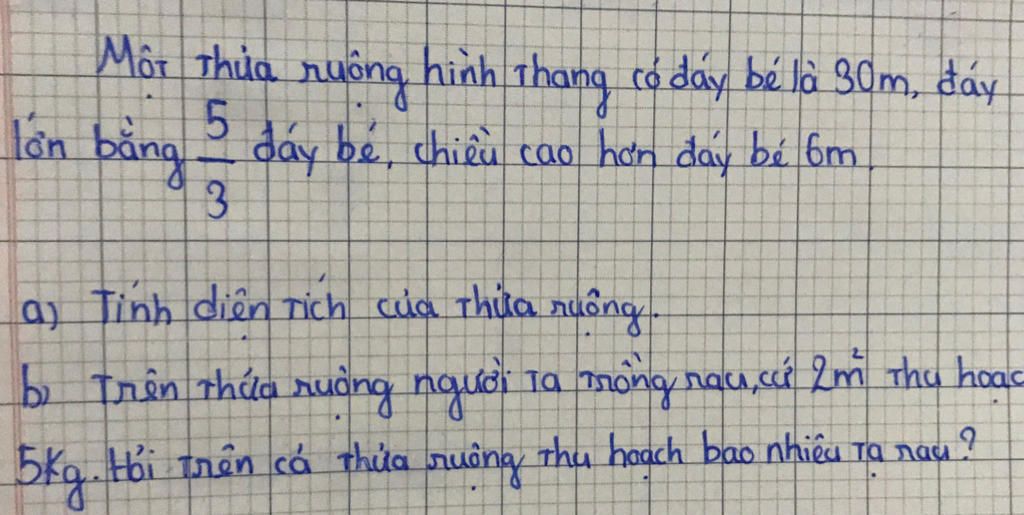 Một thửa ruộng hình thang có đáy bé là 30m, đáy
lớn bằng 5/3 đáy bé, chiều cao hơn đáy bé 6m.
a) Tính diện tích của thửa ruộng.
b) Trên thửa ruộng người ta trồng rau, cứ 2m² thu hoạc
5kg. Hỏi trên cả thửa ruộng thu hoạch bao nhiêu tạ rau?